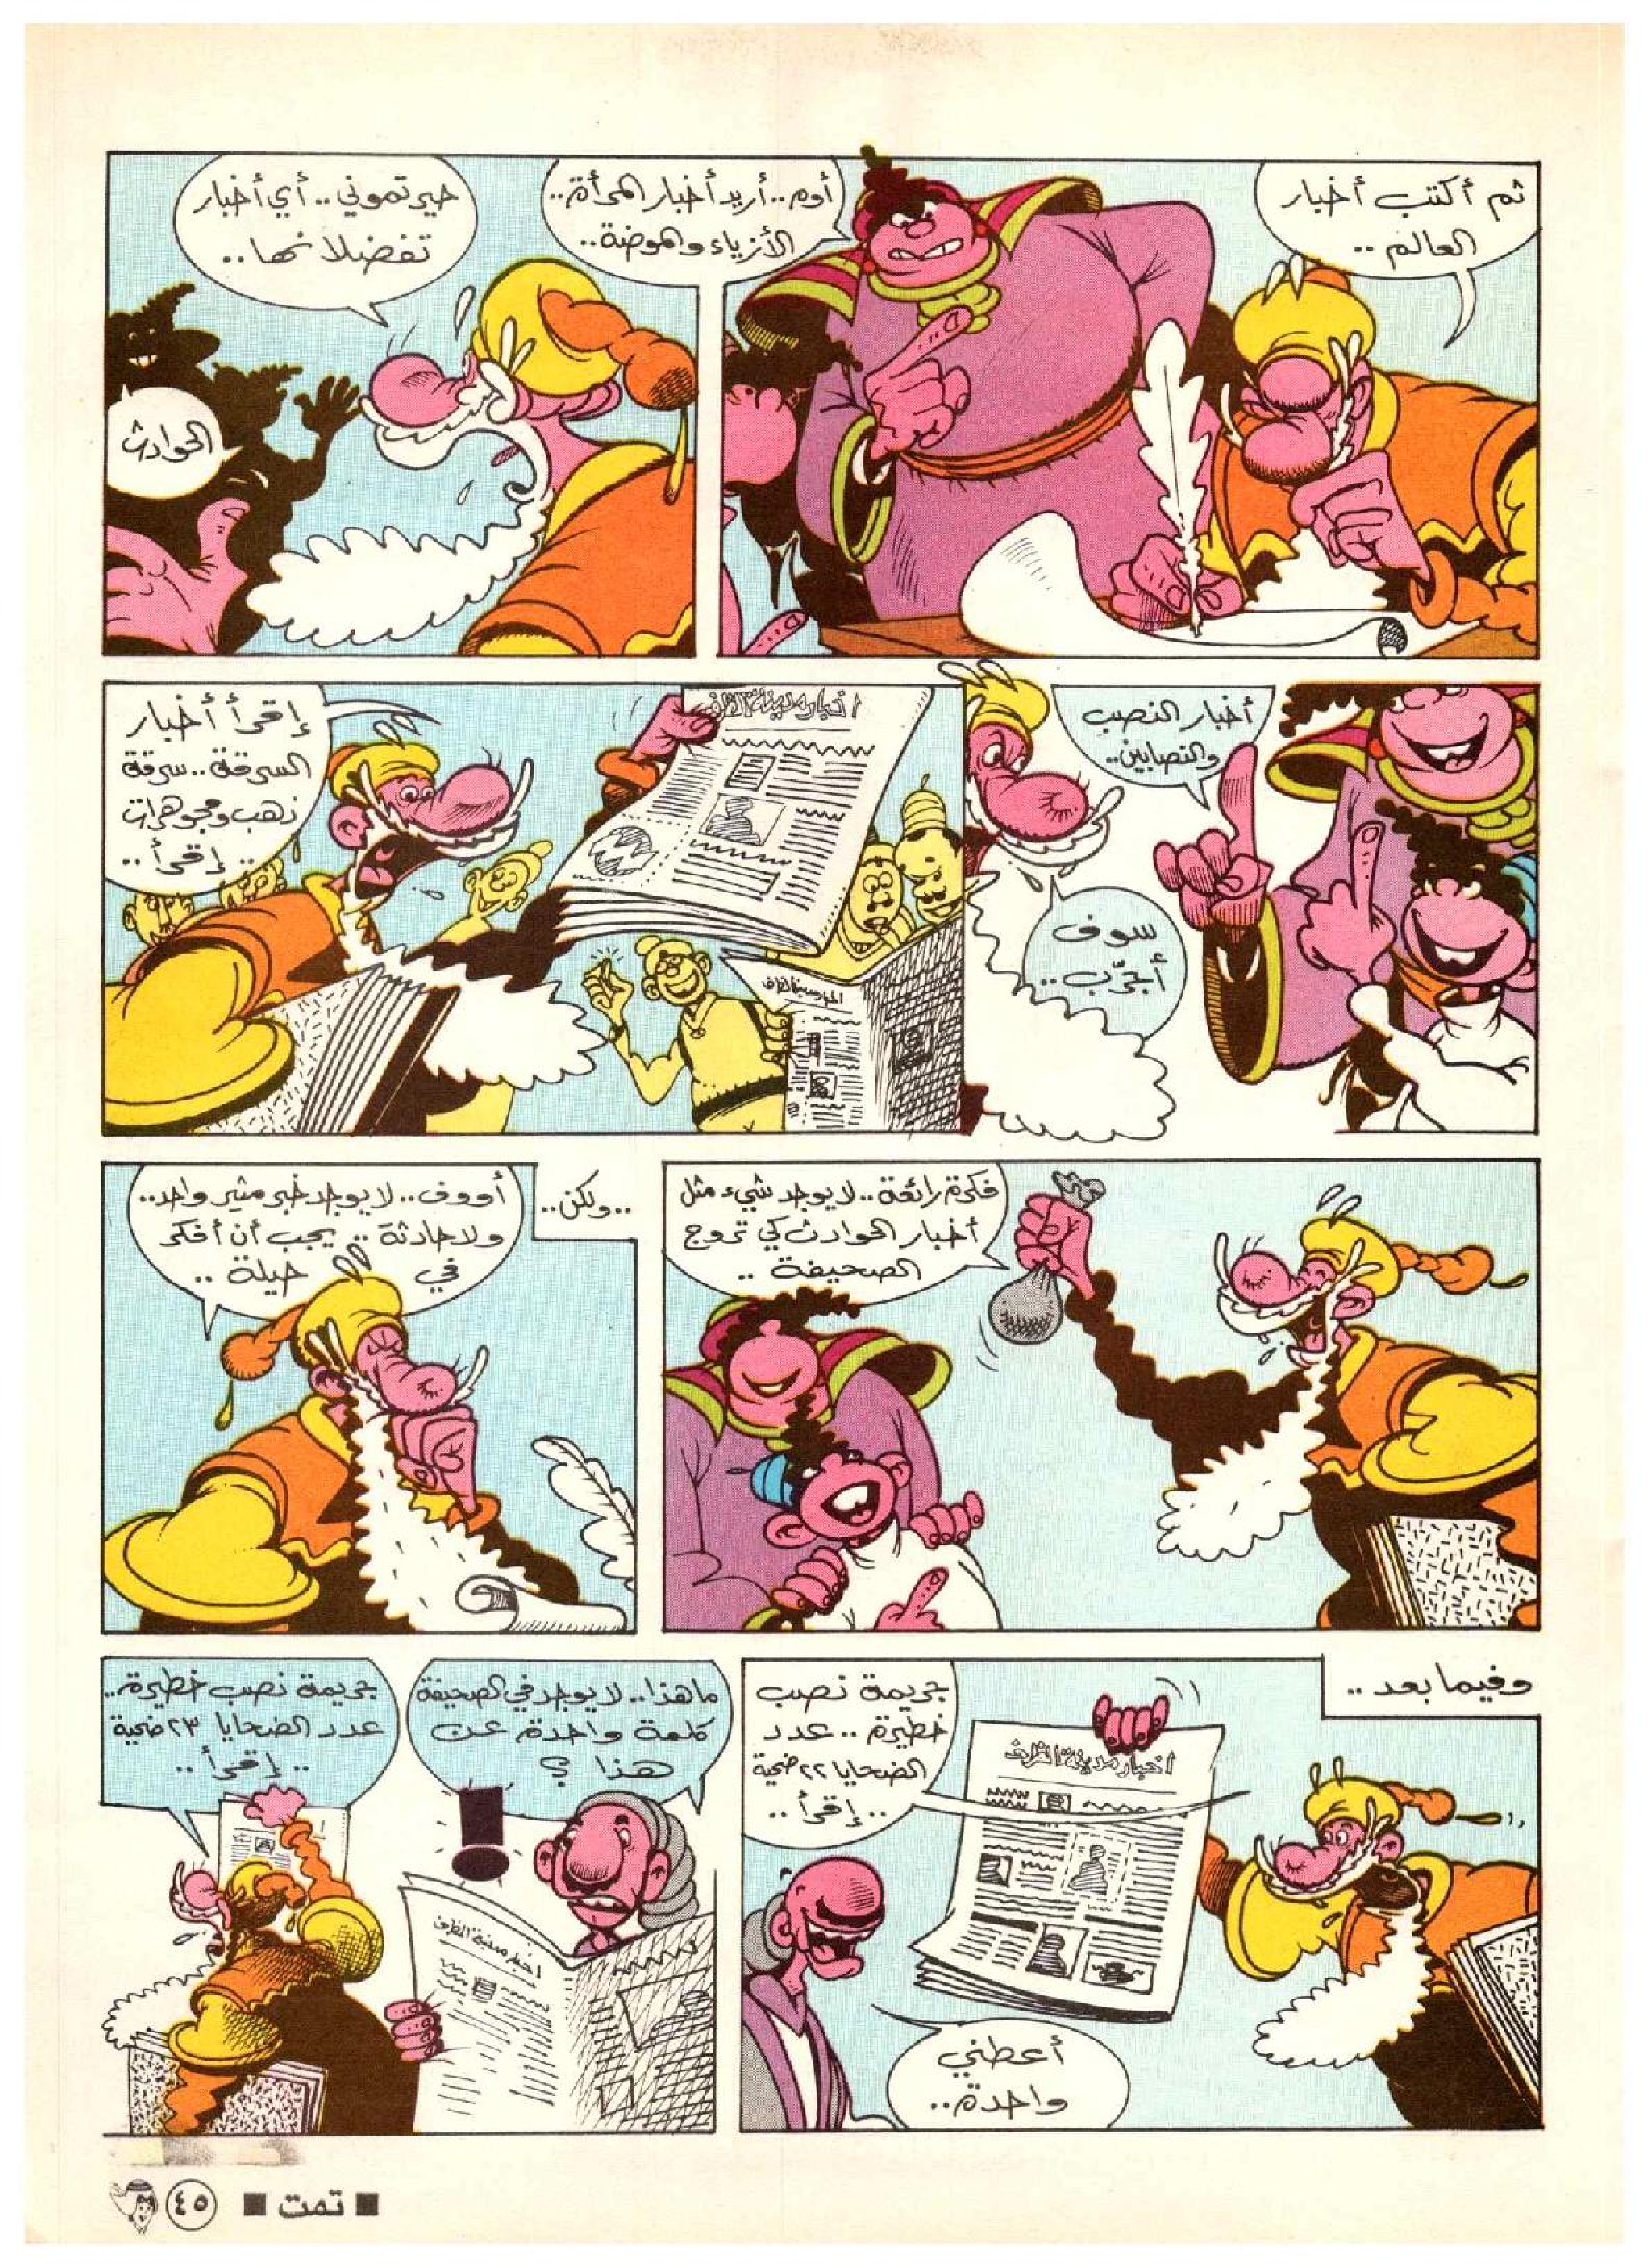 ثم أكتب أخبار
العالم ..
أوه.. أريد أخبار المرأة..
الأزياء والموضة..
حيرتموني.. أي أخبار
تفضلانها..
الحوادث
أخبار النصب
والنصابين..
سوف
أجرّب..
إقرأ أخبار
السرقة.. سرقة
ذهب ومجوهرات
.. إقرأ..
اخبار مدينة الظرف
اخبار مدينة الظرف
فكرة رائعة.. لا يوجد شيء مثل
أخبار الحوادث كي تروج
الصحيفة ..
..ولكن..
أووف.. لا يوجد خبر مثير واحد..
ولا حادثة .. يجب أن أفكر
في حيلة ..
وفيما بعد ..
جريمة نصب
خطيرة .. عدد
الضحايا ٢٢ ضحية
.. إقرأ ..
اخبار مدينة الظرف
أعطني
واحدة..
ما هذا.. لا يوجد في الصحيفة
كلمة واحدة عن
هذا ؟
اخبار مدينة الظرف
جريمة نصب خطيرة..
عدد الضحايا ٢٣ ضحية
.. إقرأ ..
■ تمت ■ ٤٥